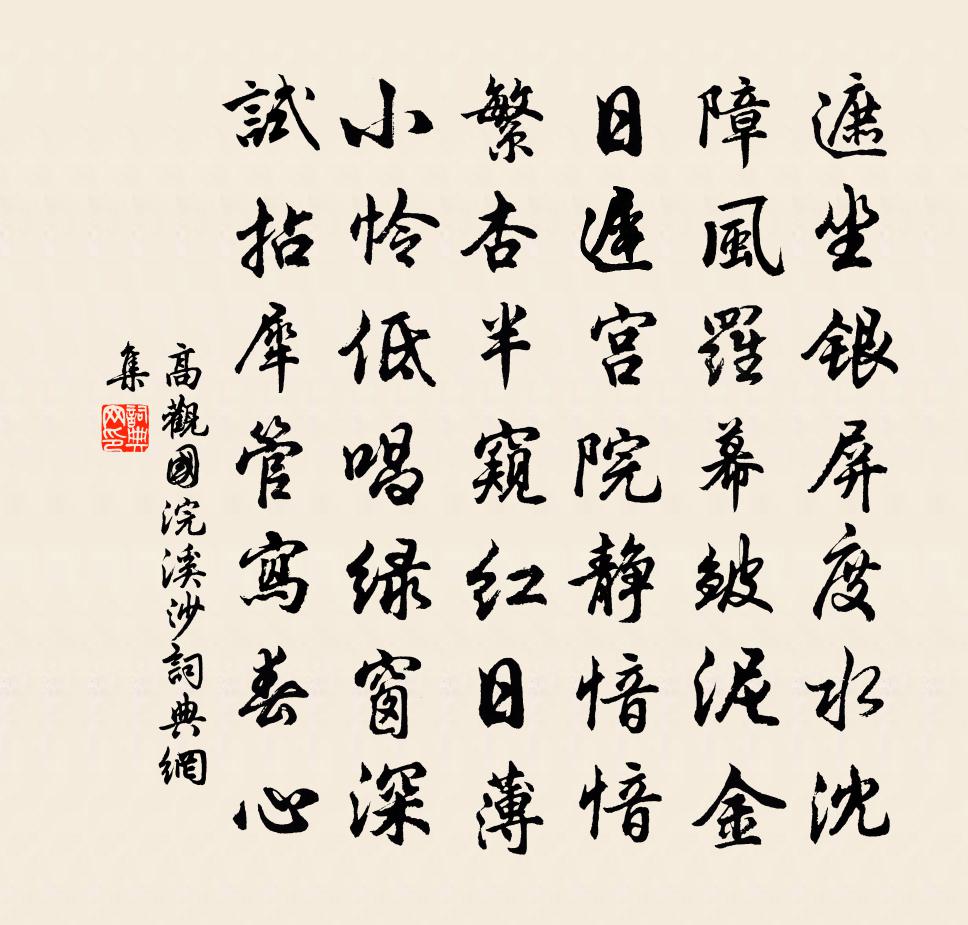 遮坐銀屏度水沈
障風羅幕皺泥金
日遲宮院靜愔愔
繁杏半窺紅日薄
小怜低唱綠窗深
試拈犀管寫春心
高觀國浣溪沙詞典網
集
詞典网印